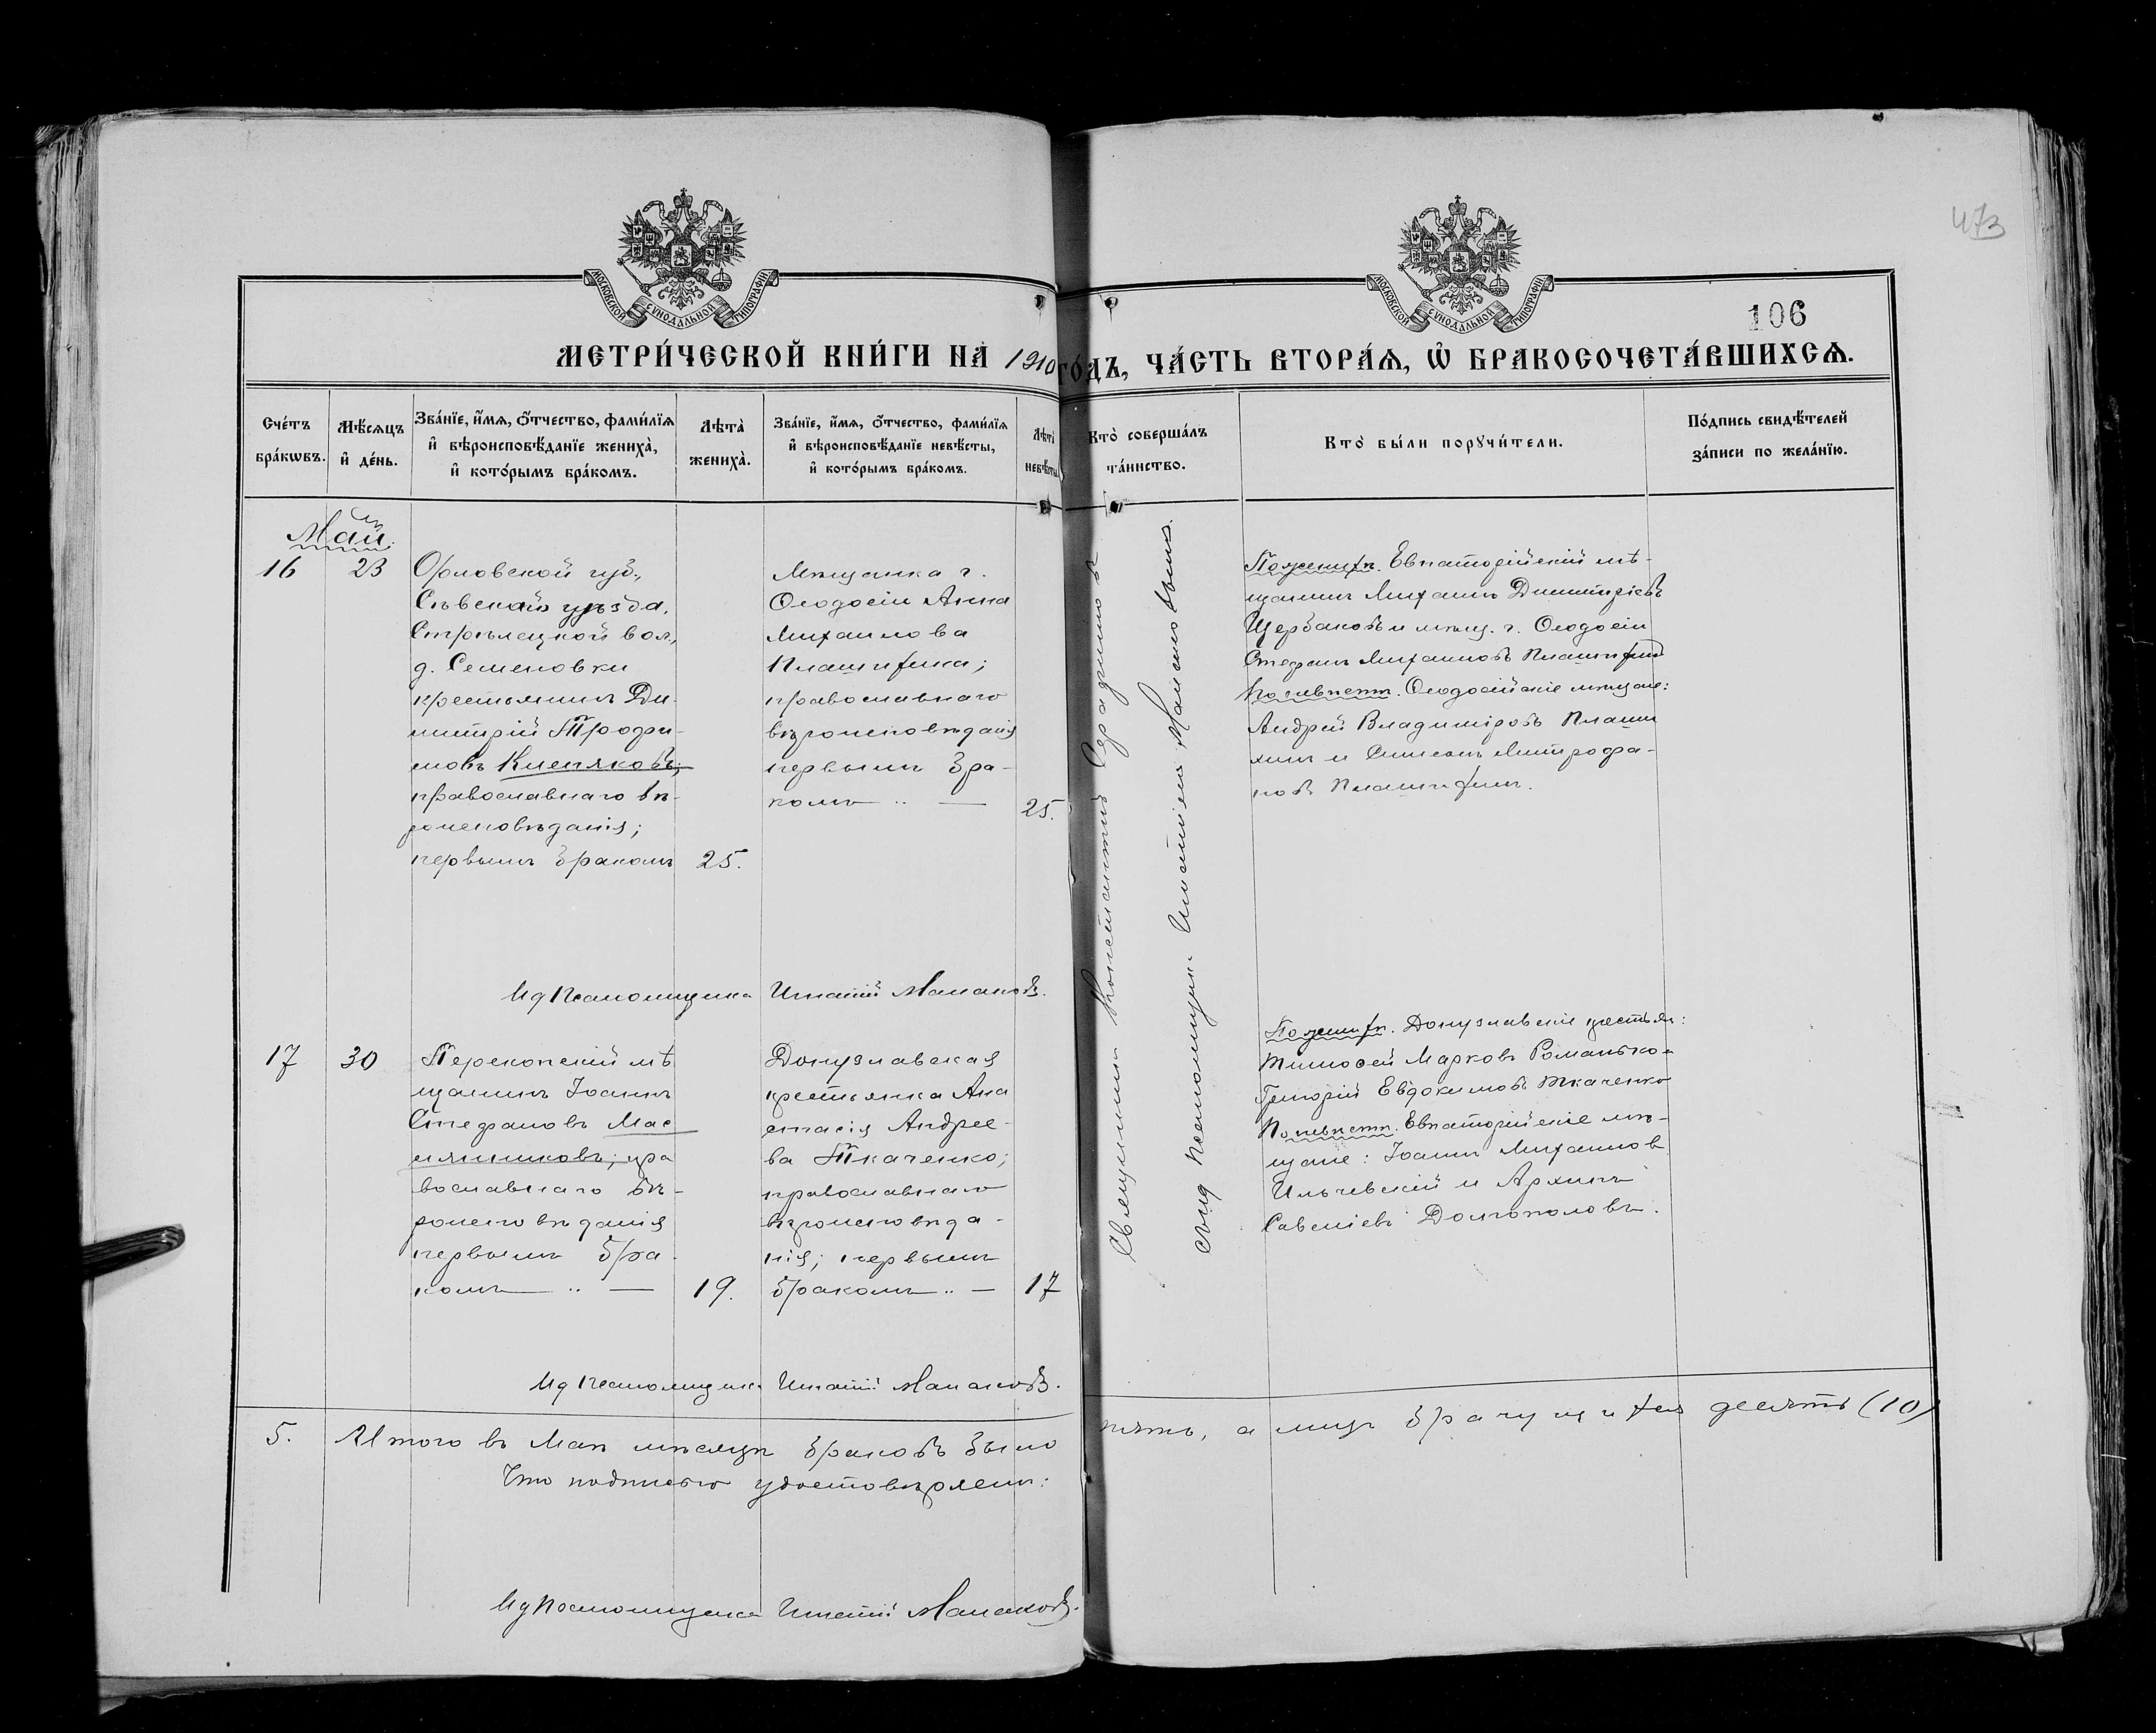 473
106
МОСКОВСКОЙ СѴНОДАЛЬНОЙ ТИПОГРАФІИ
МОСКОВСКОЙ СѴНОДАЛЬНОЙ ТИПОГРАФІИ
МЕТРИ́ЧЕСКОЙ КНИ́ГИ НА 1910 ГО́ДЪ, ЧА́СТЬ ВТОРА́Ѧ, Ѡ҆ БРАКОСОЧЕТА́ВШИХСѦ.
Сче́тъ
бра́кѡвъ.
Мѣ́сѧцъ
и҆ де́нь.
Зва́нїе, и҆́мѧ, ѻ҆́тчество, фами́лїѧ
и҆ вѣроисповѣ́данїе жениха̀,
и҆ кото́рымъ бра́комъ.
Лѣта̀
жениха̀.
Зва́нїе, и҆́мѧ, ѻ҆́тчество, фами́лїѧ
и҆ вѣроисповѣ́данїе невѣ́сты,
и҆ кото́рымъ бра́комъ.
Лѣта̀
невѣ́сты.
Кто̀ соверша́лъ
та́инство.
Кто̀ бы́ли порꙋчи́тели.
По́дпись свидѣ́телей
за́писи по жела́нїю.
Май.
16
23
Орловской губ.,
Сѣвскаго уѣзда,
Стрѣлецкой вол.,
д. Семеновки
крестьянинъ Ди-
митрій Трофи-
мовъ Кисляковъ;
православнаго вѣ-
роисповѣданія;
первымъ бракомъ
25.
Мѣщанка г.
Ѳеодосіи Анна
Михаилова
Плашихина;
православнаго
вѣроисповѣданія
первымъ бра-
комъ
25.
По женихѣ. Евпаторійскій мѣ-
щанинъ Михаилъ Димитріевъ
Щербаковъ и мѣщ. г. Ѳеодосіи
Стефанъ Михаиловъ Плашихинъ
По невѣстѣ. Ѳеодосійскіе мѣщане:
Андрей Владиміровъ Плаши
хинъ и Симеонъ Митрофа-
новъ Плашихинъ.
Ид Псаломщика Игнатій Манаковъ.
Священникъ Константинъ
съ ид псаломщика Игнатіемъ Манаковымъ.
17
30
Перекопскій мѣ
щанинъ Іоаннъ
Стефановъ Мас
лянниковъ; пра
вославнаго вѣ-
роисповѣданія
первымъ бра-
комъ
19.
Донузлавская
крестьянка Ана
стасія Андрее-
ва Ткаченко;
православнаго
вѣроисповѣда-
нія; первымъ
бракомъ
17
По женихѣ. Донузлавскіе крестьян:
Тимоѳей Марковъ Романько
Григорій Евдокимовъ Ткаченко
По невѣстѣ. Евпаторійскіе мѣ-
щане: Іоаннъ Михаиловъ
Ильчевскій и Архипъ
Савеліевъ Долгополовъ.
Ид Псаломщика Игнатій Манаковъ.
5. Итого въ Маѣ мѣсяцѣ браковъ было пять, а лицъ брачущихся десять (10)
Что подписью удостовѣряемъ:
Ид Псаломщика Игнатій Манаковъ.